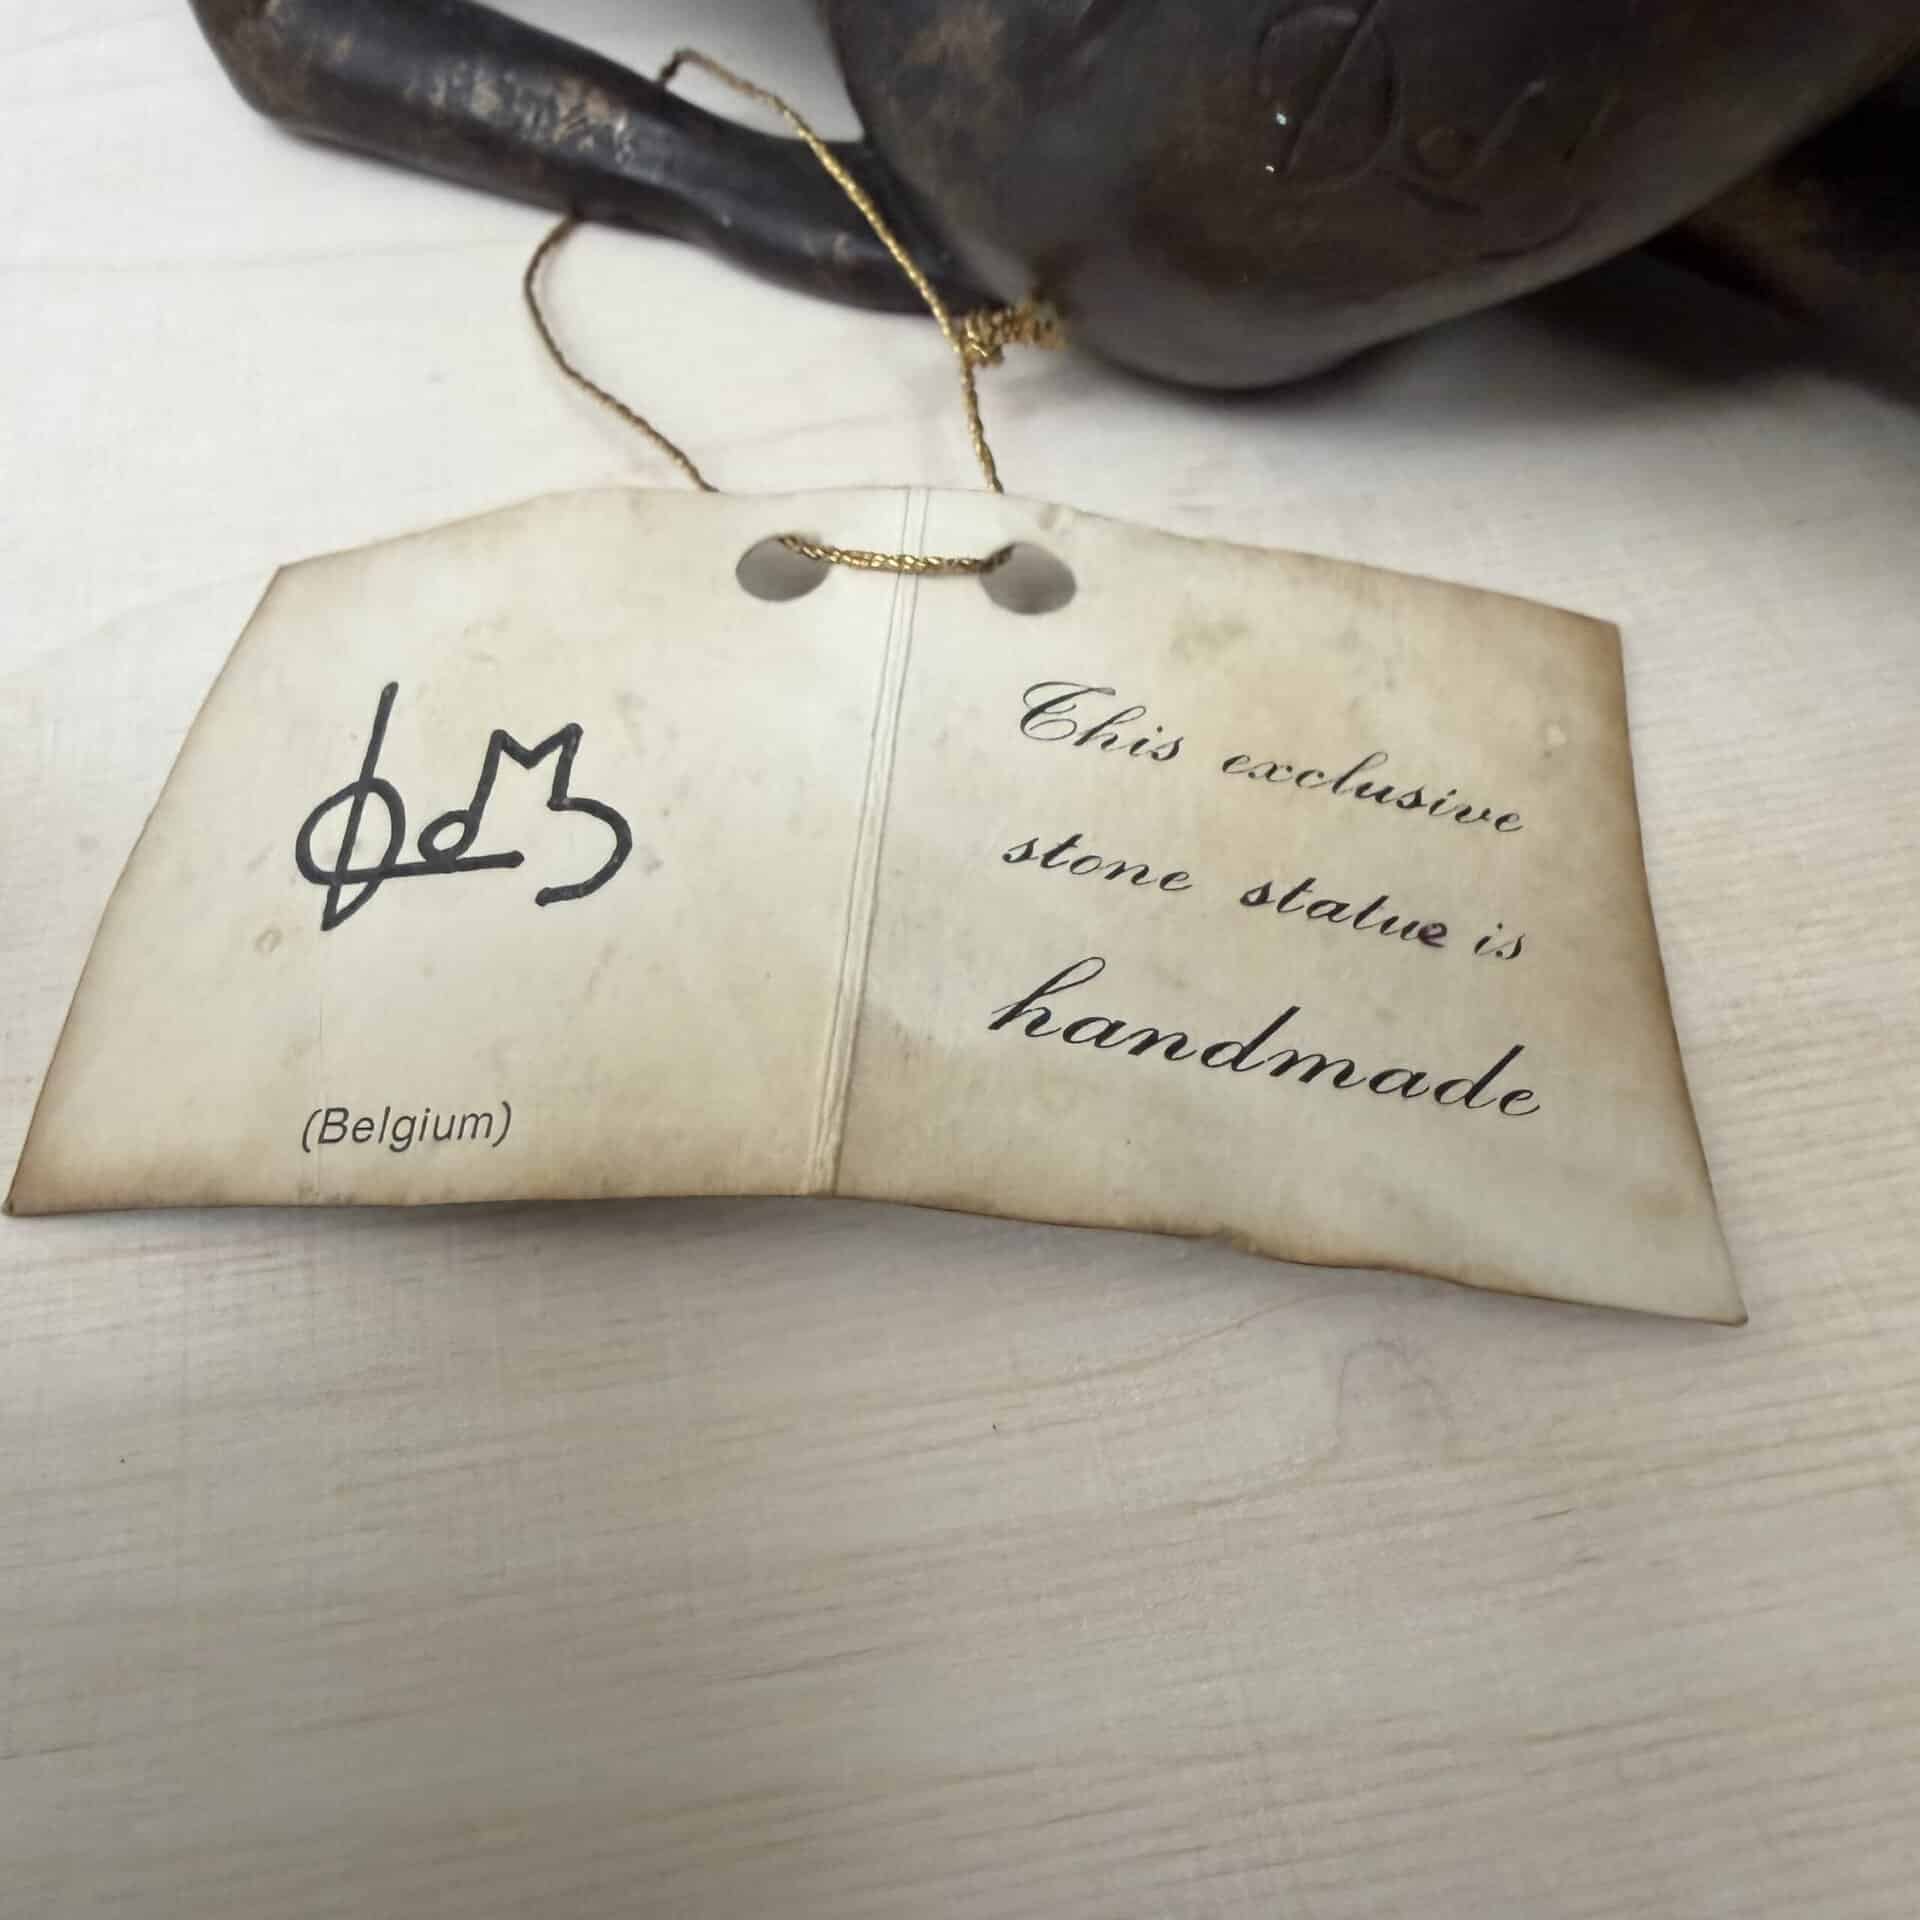 (Belgium)
This exclusive
stone statue is
handmade